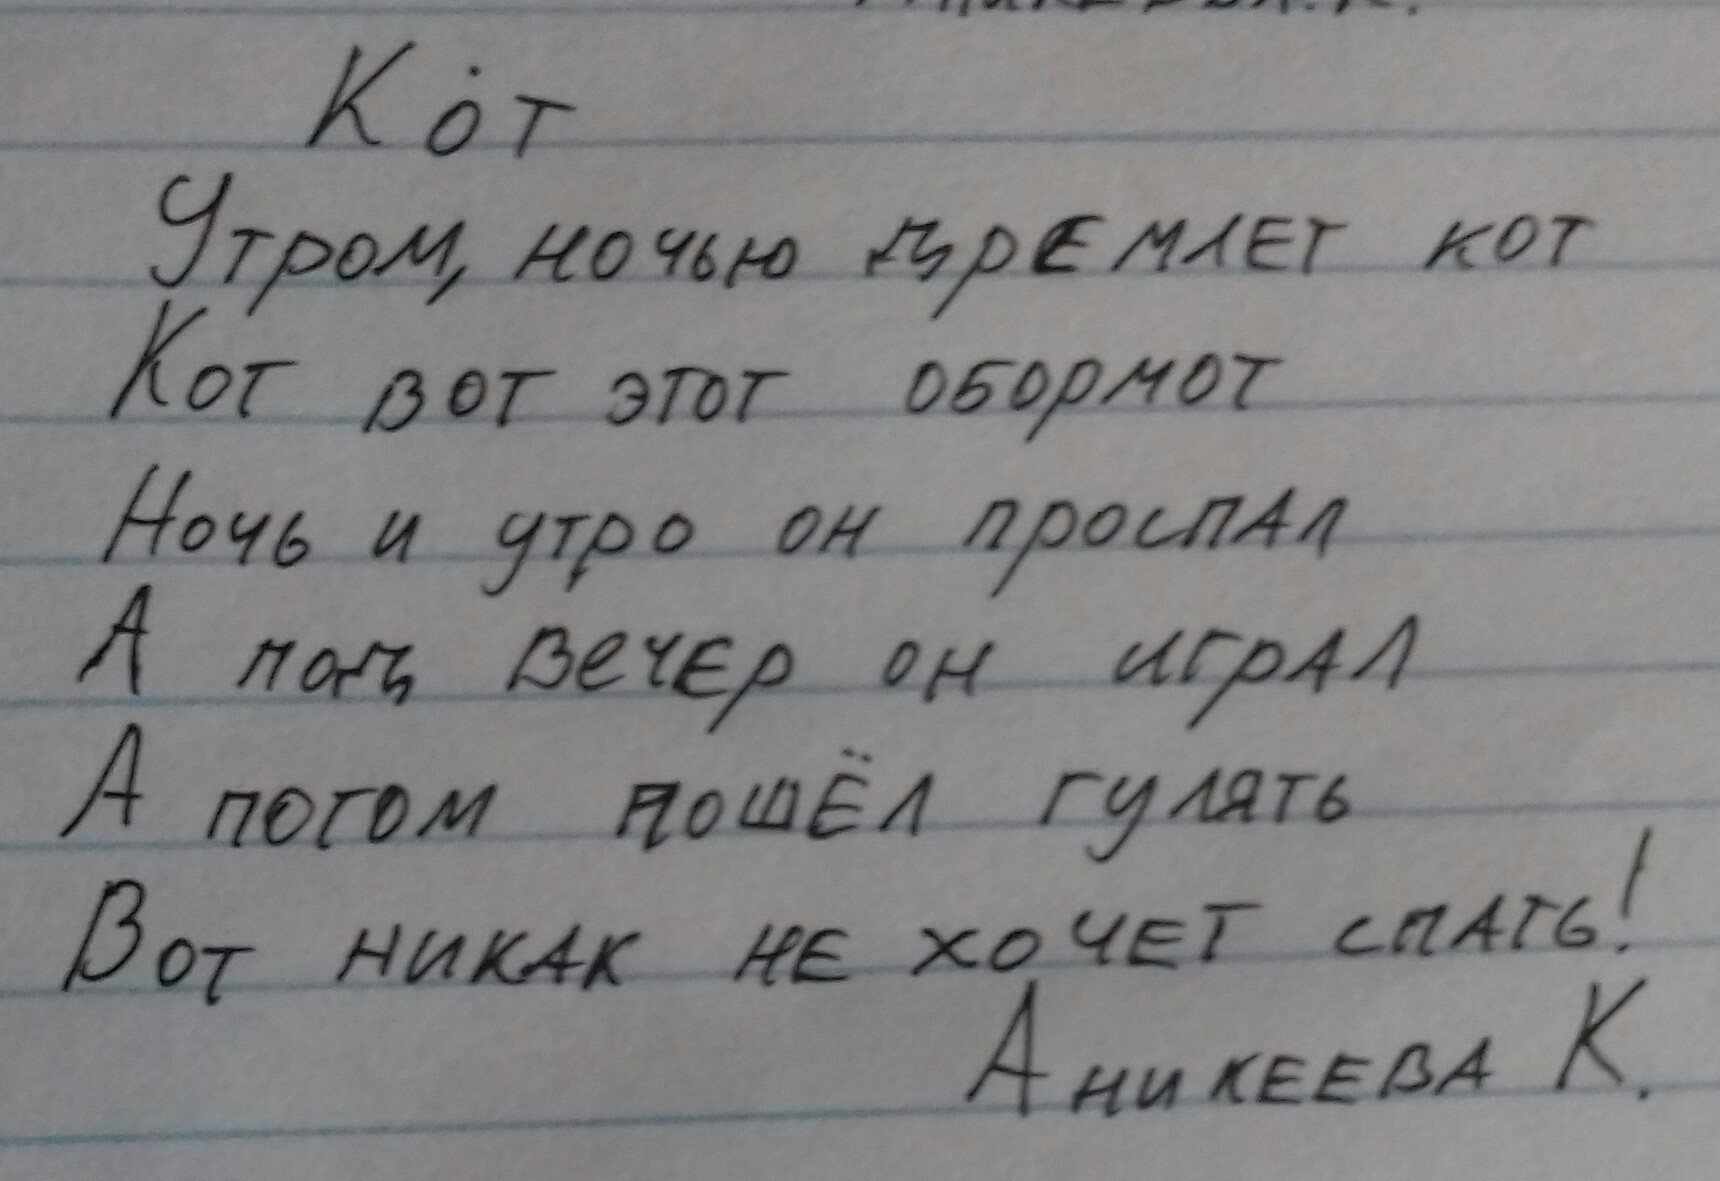 Кот
Утром, ночью дремлет кот
Кот вот этот обормот
Ночь и утро он проспал
А под вечер он играл
А потом пошёл гулять
Вот никак не хочет спать!
Аникеева К.